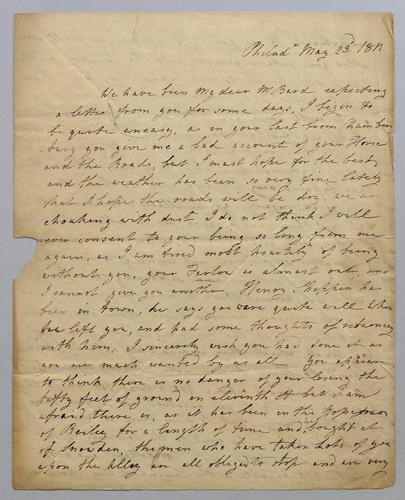 Philad.ª May 23.d 1811
We have been My dear Mr Bard expecting
a letter from you for some days. I begin to
be quite uneasy, as in your last from Cham
burg you give me a bad account of your Horse
and the Roads, but I must hope for the best,
and the weather has been so very fine lately
that I hope the roads will be dry. we are
choaking with dust. I do not think I will
ever consent to your being so long from me
again, as I am tired most heartily of being
without you, your Furlow is almost out, and
I cannot give you another. Henry has
been in town, he says you were quite well when
he left you, and had some thoughts of returning
with him. I sincerely wish you had done it as
you are much wanted by us all You appear
to think there is no danger of your losing the
fifty feet of ground on eleventh St but I am
afraid there is, as it has been in the possession
of for a length of time and bought it
of Snowden, the men who have taken Lots of you
upon the Alley are all obliged to stop and are very